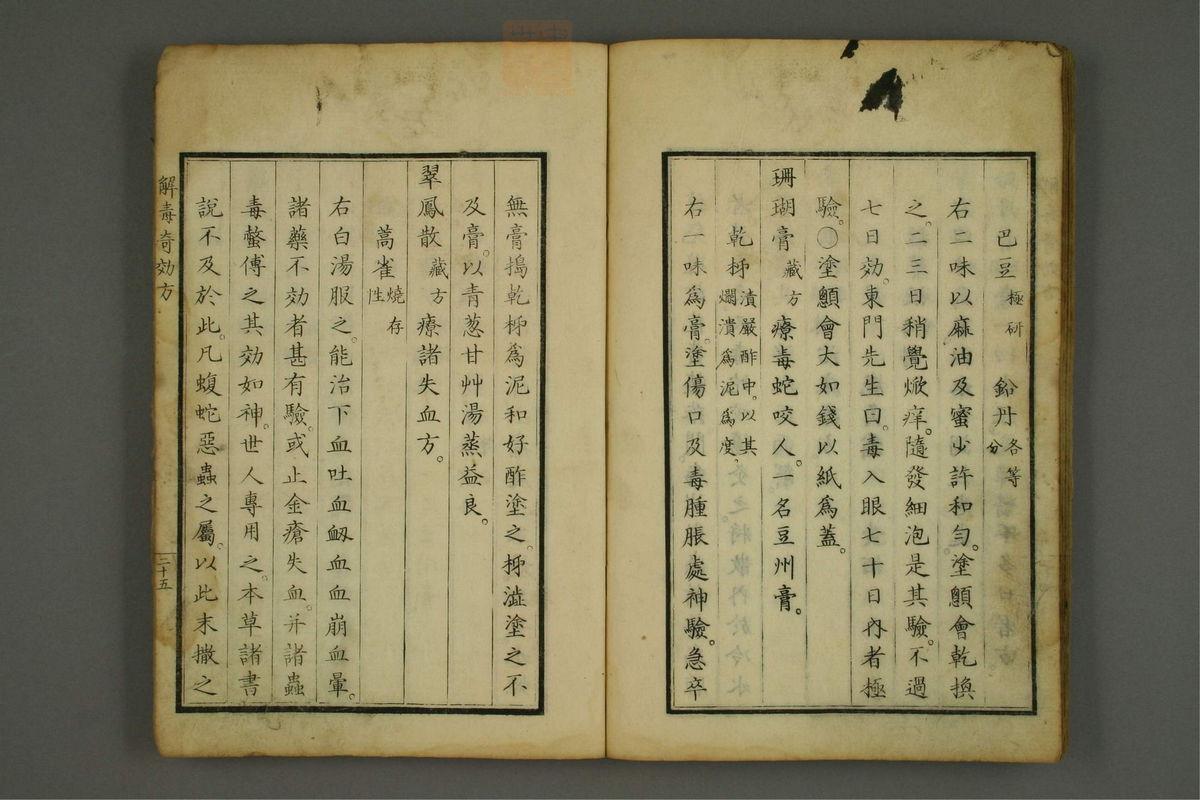 巴豆極研　鉛丹各等分
右二味以麻油及蜜少許和勻。塗顖會乾換
之。二三日稍覺焮痒。隨發細泡是其驗。不過
七日効。東門先生曰。毒入眼七十日內者極
驗。○塗顖會大如錢以紙爲蓋。
珊瑚膏藏方療毒蛇咬人。一名豆州膏。
乾柹漬嚴酢中。以其爛潰爲泥爲度。
右一味爲膏。塗傷口及毒腫脹處神驗。急卒
無膏搗乾柹爲泥和好酢塗之。柹澁塗之不
及膏。以青葱甘艸湯蒸益良。
翠鳳散藏方療諸失血方。
蒿雀燒存性
右白湯服之。能治下血吐血衂血血崩血暈。
諸藥不効者甚有驗。或止金瘡失血。并諸蟲
毒螫傅之其効如神。世人專用之。本草諸書
說不及於此。凡蝮蛇惡蟲之屬。以此末撒之
解毒奇効方
二十五